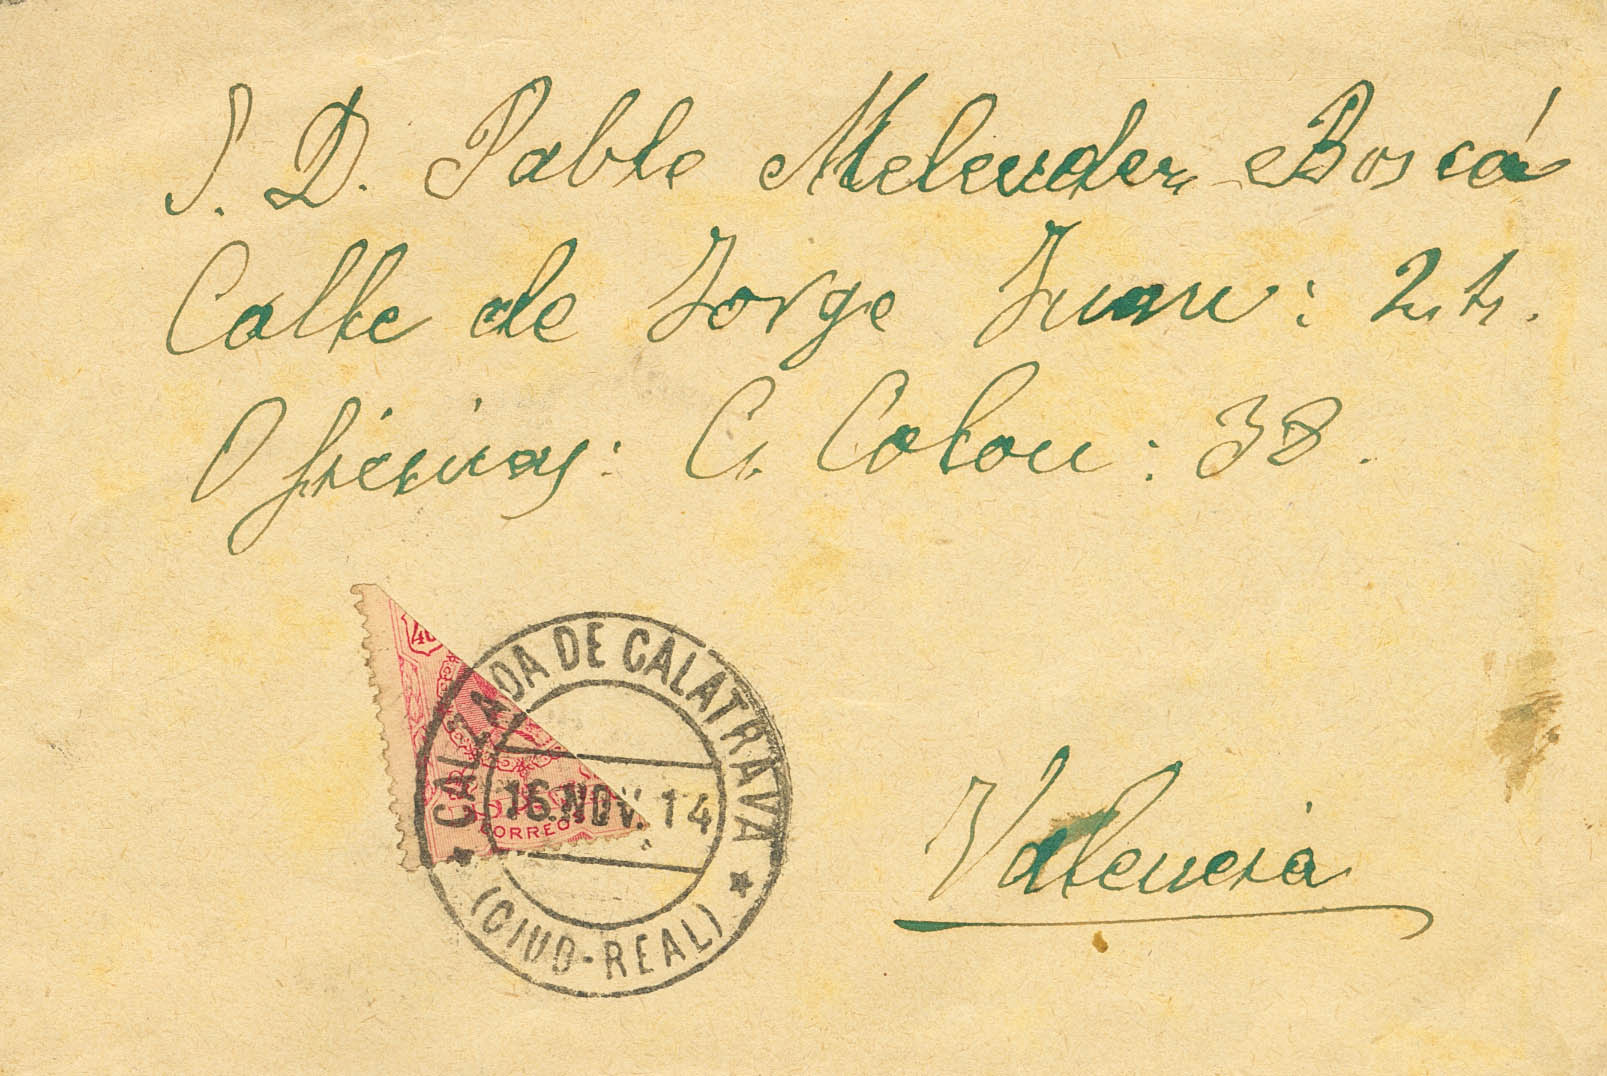 S. D. Pablo Melendez Boscá
Calle de Jorge Juan:
Oficinas: C. Colon: 38.
40
CORREOS
CALZADA DE CALATRAVA
16.NOV.14
(CIUD-REAL)
Valencia